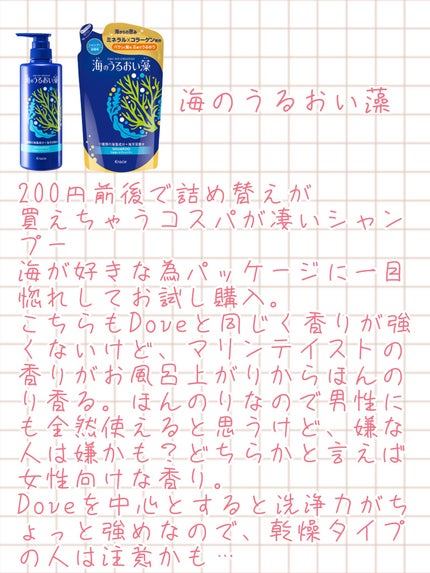 海のうるおい藻
海からの恵み
ミネラル×コラーゲン
海のうるおい藻
SHAMPOO
Kracie
海のうるおい藻
200円前後で詰め替えが
買えちゃうコスパが凄いシャン
プー
海が好きな為パッケージに一目
惚れしてお試し購入。
こちらもDoveと同じく香りが強
くないけど、マリンテイストの
香りがお風呂上がりからほんの
り香る。ほんのりなので男性に
も全然使えると思うけど、嫌な
人は嫌かも？どちらかと言えば
女性向けな香り。
Doveを中心とすると洗浄力がち
ょっと強めなので、乾燥タイプ
の人は注意かも…